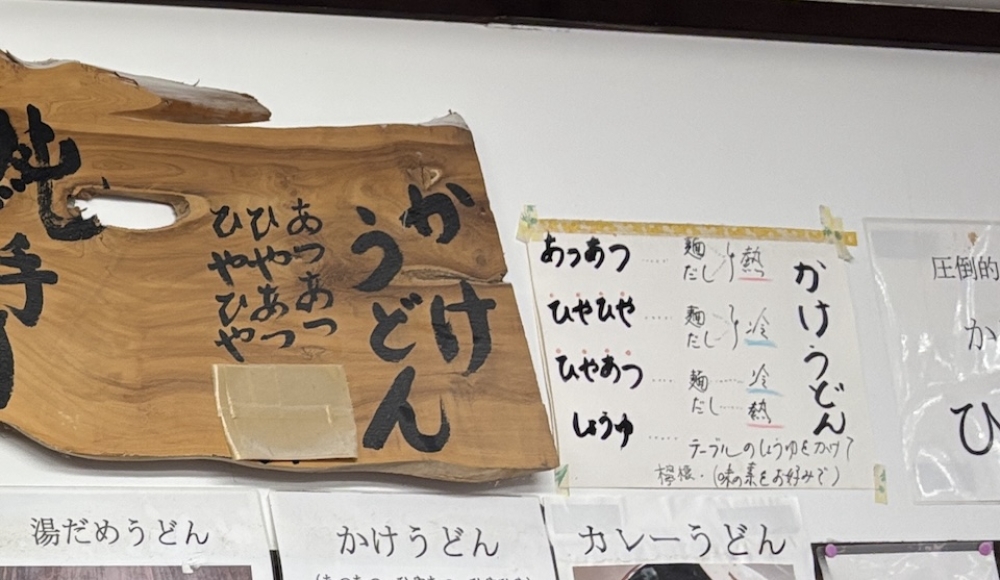 かけ
うどん
あつあつ
ひやあつ
ひやひや
純手
かけうどん
あつあつ …… 麺 だし 熱
ひやひや …… 麺 だし 冷
ひやあつ …… 麺 …… 冷
だし …… 熱
しょうゆ …… テーブルのしょうゆをかけて
檸檬・(味の素をお好みで)
圧倒的
か
ひ
湯だめうどん
かけうどん
カレーうどん